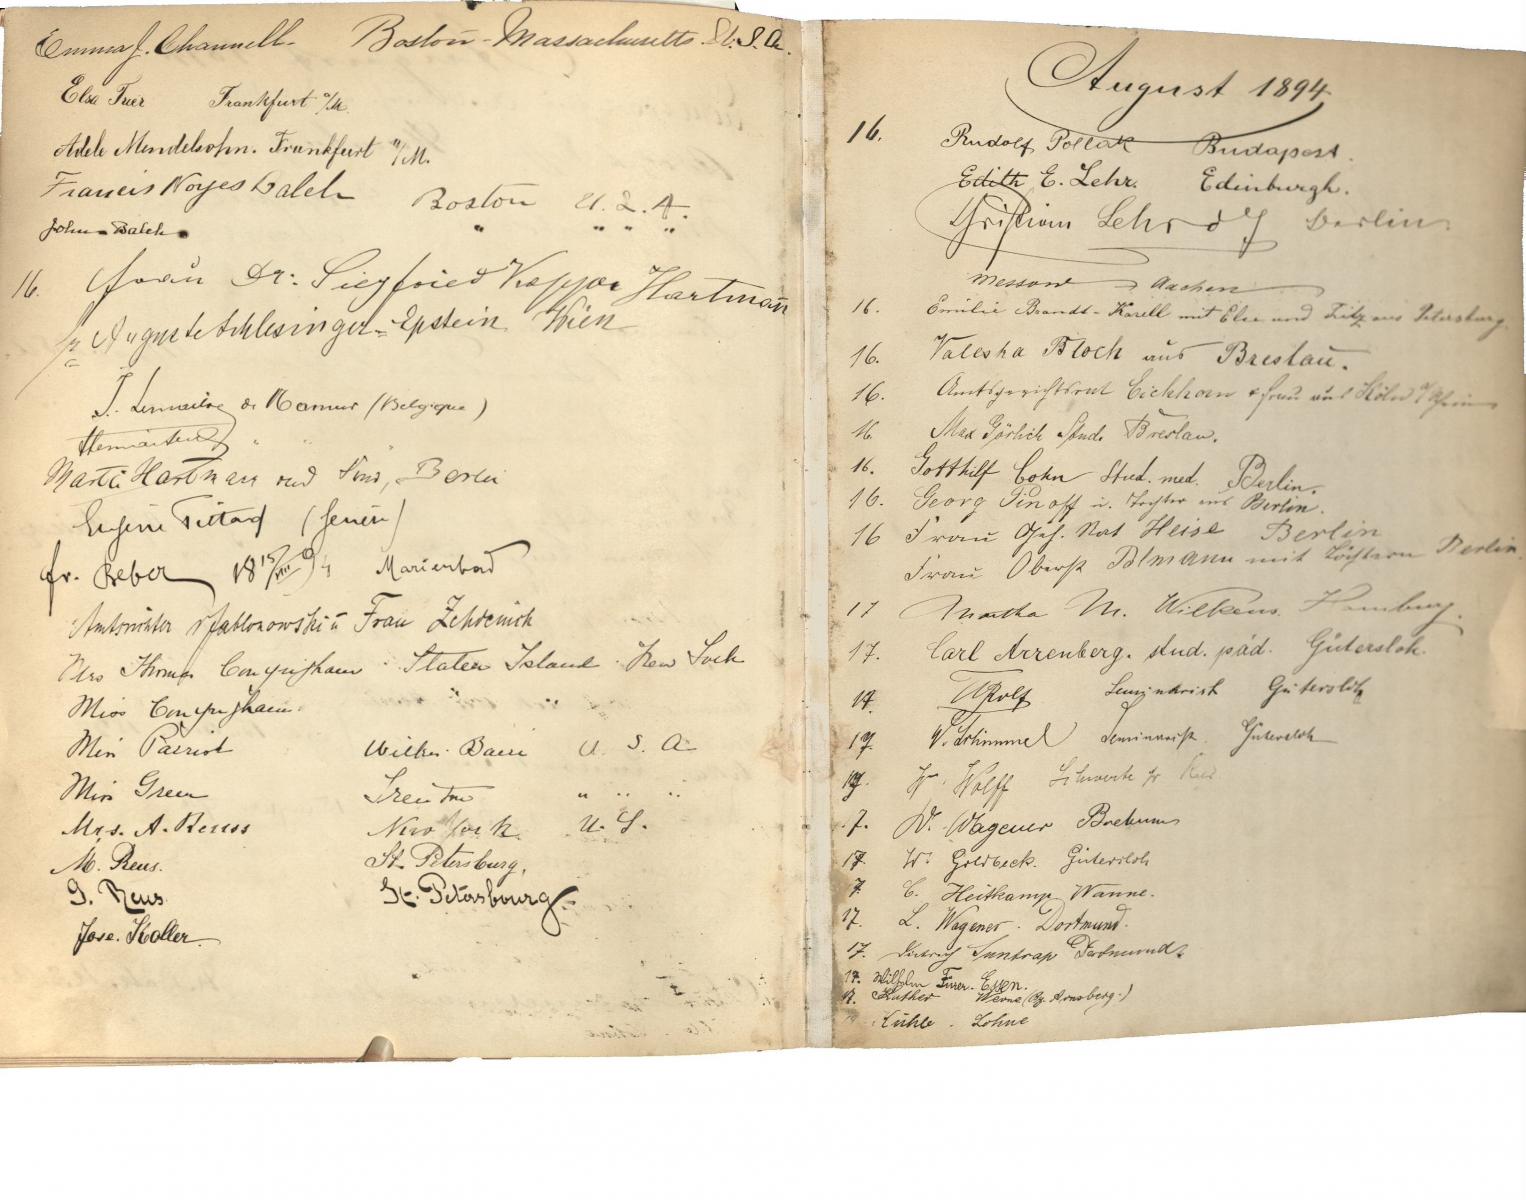 Emma J. Channell. Boston - Massachusetts. U. S. A.
Elsa Trier Frankfurt a/M.
Adele Mendelsohn. Frankfurt a/M.
Francis Noyes Balch Boston U. S. A.
John Balch " " " "
16. Frau Dr: Siegfried Kapper Hartmann
Auguste Schlesinger-Epstein Wien
J. Lemaitre de Namur (Belgique)
" "
Martin Hartmann und Berlin
Eugène Pittard (Genève)
fr. Beber 18 15/VIII 94 Marienbad
Amtsrichter Jablonowski u Frau Zehdenick
Mrs Thomas Conyngham Staten Island New York
Miss Conyngham
Miss Parrish Wilkes-Barre U. S. A
Miss Green Trenton " " "
Mrs. A. Reuss New York U. S.
M. Reus. St. Petersburg,
G. Reus St. Petersbourg
Jose. Koller.
August 1894
16. Rudolf Pollak Budapest.
Edith E. Lehr. Edinburgh.
Christian Berlin.
Messow Aachen
16. Emilie Brandt-Karell mit Else und Fritz aus Petersburg.
16. Valeska Bloch aus Breslau.
16. Amtsgerichtsrat Eichhorn & Frau aus Köln a/Rhein
16 Max Görlich Stud. Breslau.
16. Gotthilf Cohn stud. med. Berlin.
16. Georg Pinoff u. Tochter aus Berlin.
16 Frau Geh. Rat Heise Berlin
Frau Oberst mit Töchtern Berlin.
17 Martha M. Wilkens. Hamburg.
17. Carl Arrenberg. stud. päd. Gütersloh.
17. Rolf Seminarist Gütersloh
17. W. Schimmel Seminarist Gütersloh
17. W. Wolff Schwerte
7. W. Wagener Bochum
17 W. Goldbeck. Gütersloh
7 C. Heitkamp Wanne.
17. L. Wagener. Dortmund.
17. Dietrich Suntrap Dortmund
17. Wilhelm Essen.
17. Luther Werne (Bz. Arnsberg.)
Kühle. Lohne